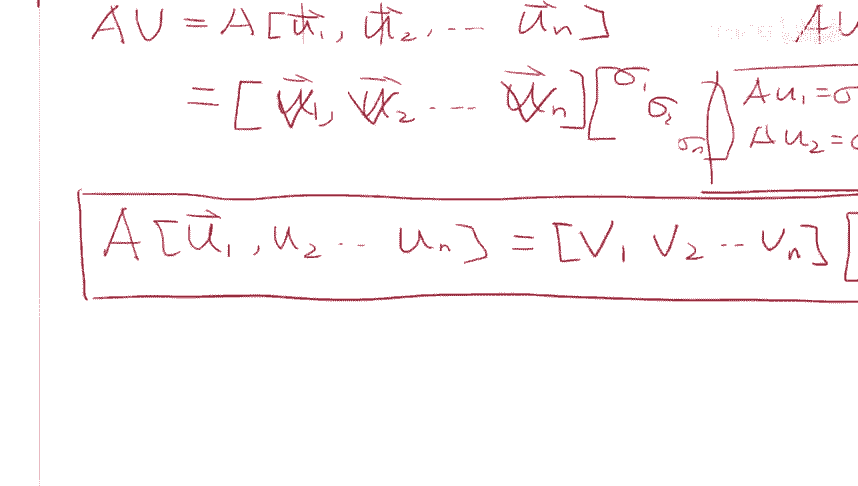 AU = A[u⃗₁, u⃗₂, ... u⃗ₙ] AU
= [v⃗₁, v⃗₂ ... v⃗ₙ][σ₁ σ₂ σₙ] Au₁=σ
Au₂=σ
A[u⃗₁, u₂ ... uₙ] = [v₁ v₂ ... vₙ][